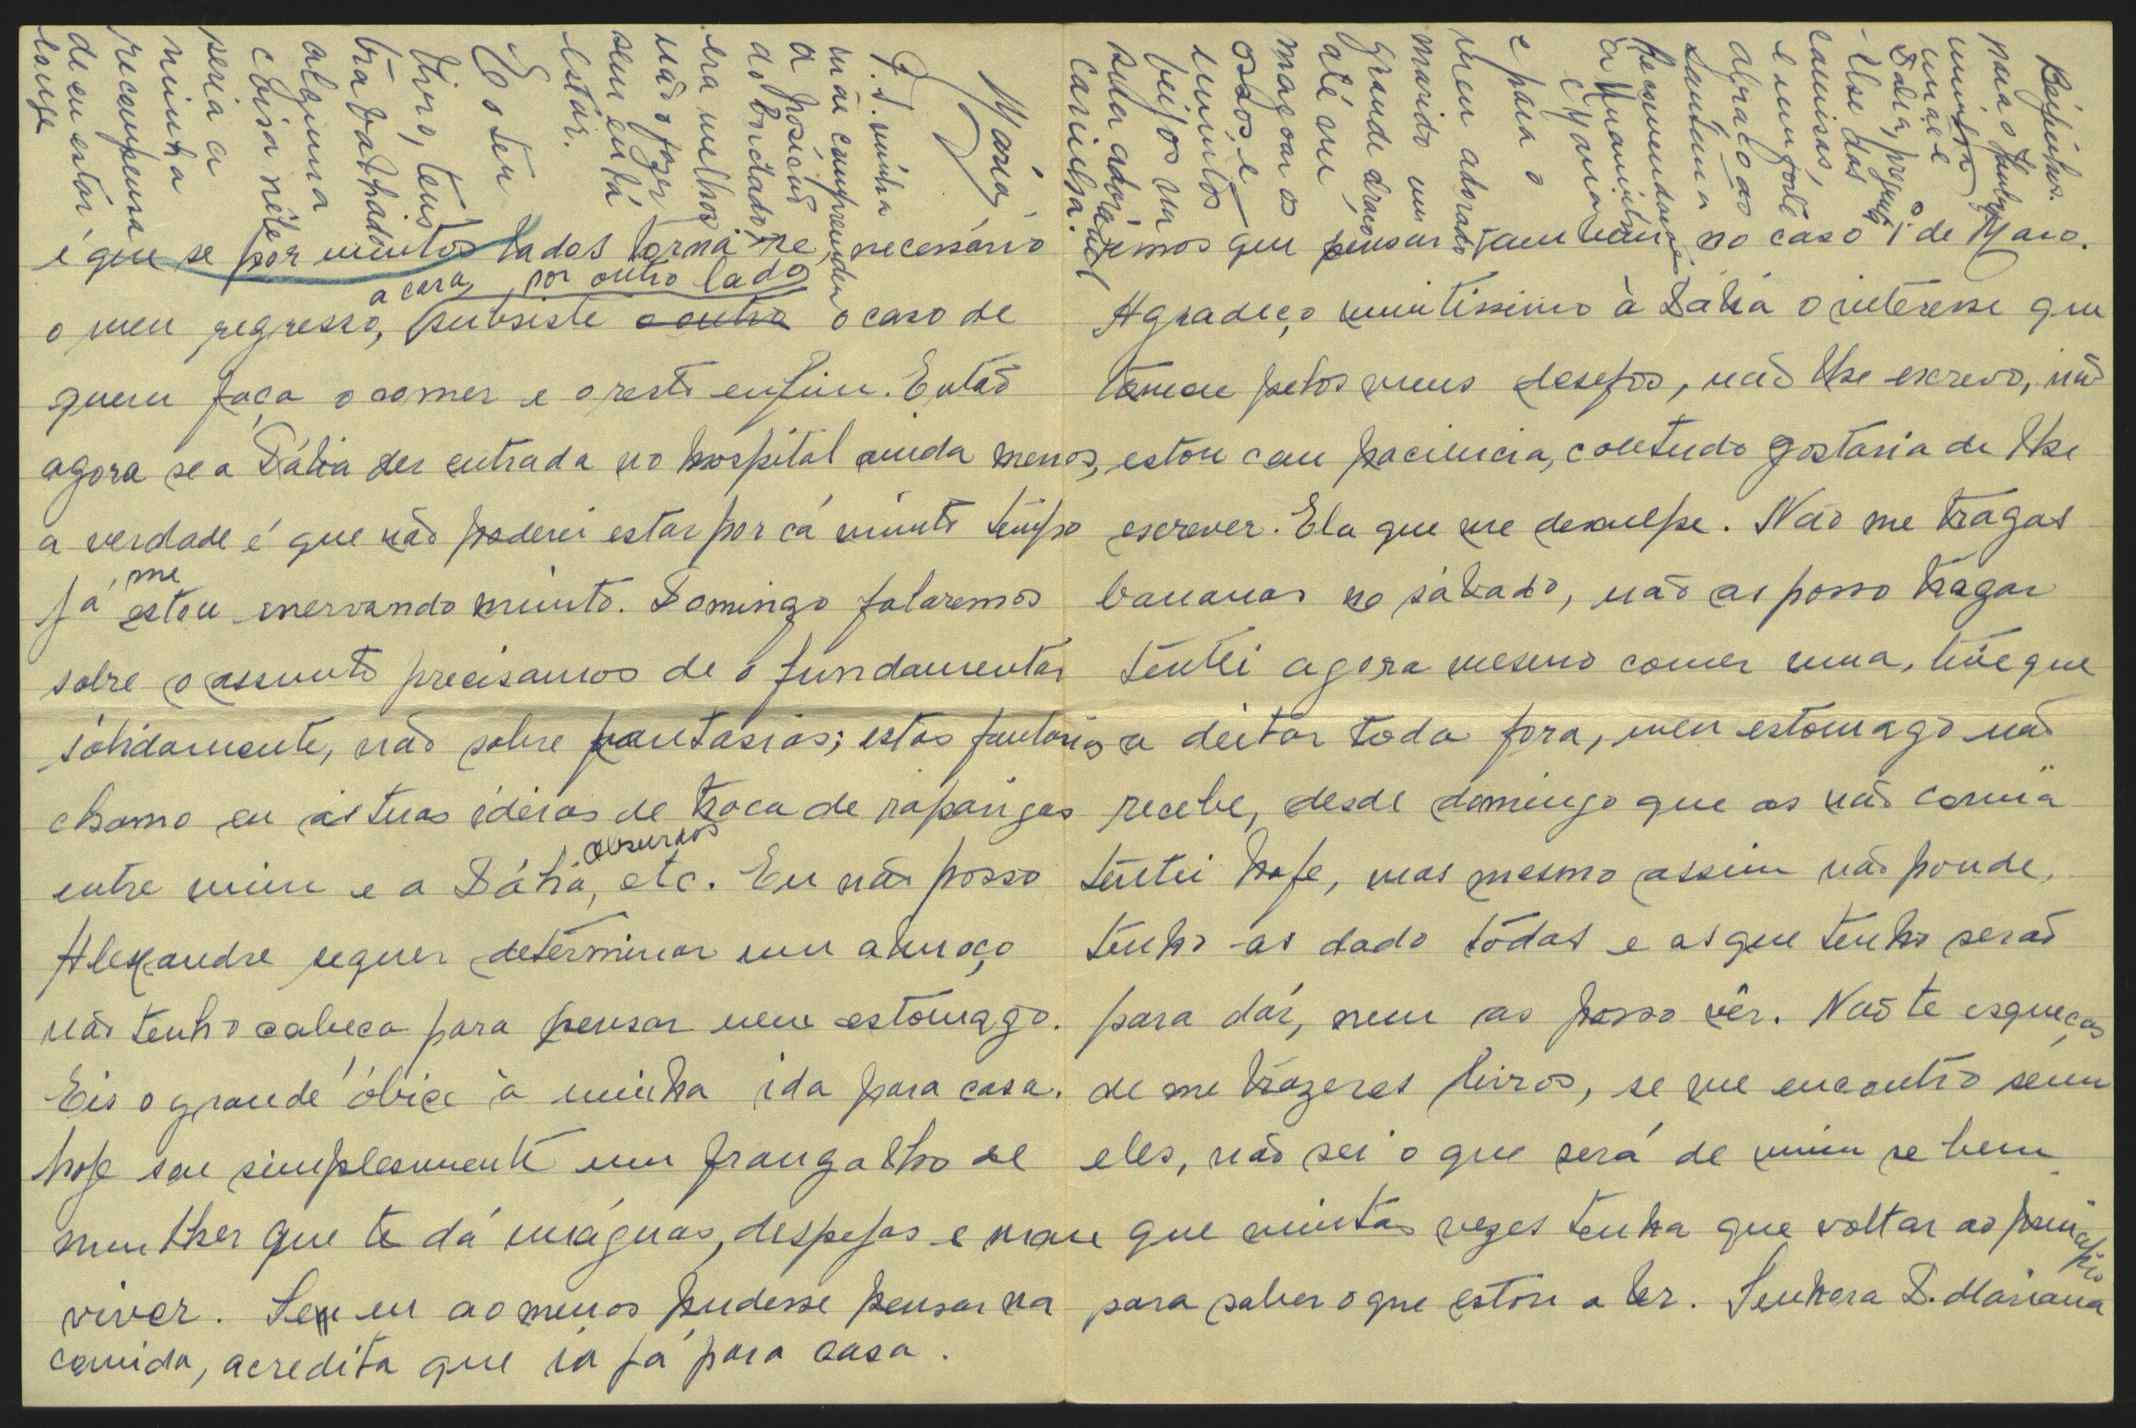 é que se por muitos lados torna-se necessário
o meu regresso, a casa, por outro lado subsiste o outro o caso de
quem faça o comer e o resto enfim. Então
agora se a Dália der entrada no hospital ainda menos,
a verdade é que não poderei estar por cá muito tempo
já me estou enervando muito. Domingo falaremos
sobre o assunto precisamos de o fundamentar
sólidamente, não sobre fantasias; estas fantasias
chamo eu ás tuas idéias de troca de raparigas
entre mim e a Dália, absurdos etc. Eu não posso
Alexandre sequer determinar um almoço
não tenho cabeça para pensar nem estomago.
Eis o grande óbice à minha ida para casa.
hoje sou simplesmente um frangalho de
mulher que te dá máguas, despesas e mau
viver. Se eu ao menos pudesse pensar na
comida, acredita que ia já para casa.
temos que pensar tambem no caso 1º de Maio.
Agradeço muitissimo à Dália o interesse que
tomou pelos meus desejos, não lhe escrevo, não
estou com paciencia, contudo gostaria de lhe
escrever. Ela que me desculpe. Não me tragas
bananas no sábado, não as posso tragar
tentei agora mesmo comer uma, tive que
a deitar toda fora, meu estomago não
recebe, desde domingo que as não comia
tentei hoje, mas mesmo assim não poude,
tenho-as dado tôdas e as que tenho serão
para dár, nem as posso vêr. Não te esqueças
de me trazeres livros, se me encontro sem
eles, não sei o que será de mim se bem
que muitas vezes tenha que voltar ao principio
para saber o que estou a ler. Senhora D. Mariana
Beijinhos
para o
minha
mãe e
Dália, pergunta
-lhe das
camisas,
e um forte
abraço ao
Santana
Recomendações
á Mariana
e Maria
e para o
meu adorado
marido um
grande abraço
até me
magoar os
ossos, e
muitos
beijos na
sua adorável
carinha.
Maria
P.S. minha
mãe compreender
a posição
do bordado,
era melhor
não fazer
sem eu lá
estar.
E o teu
livro, tens
trabalhado
alguma
coisa nêle
seria a
minha
recompensa
de eu estar
longe